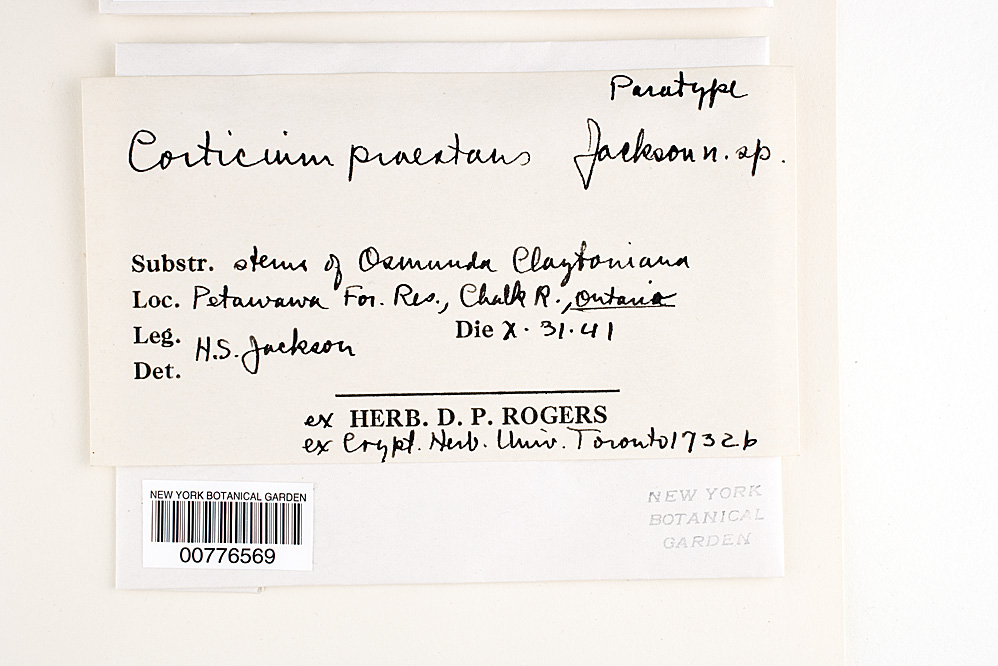 Paratype
Corticium praestans Jackson n. sp.
Substr. stems of Osmunda Claytoniana
Loc. Petawawa For. Res., Chalk R., Ontario
Leg. H.S. Jackson Die X. 31. 41
Det.
ex HERB. D. P. ROGERS
ex Crypt. Herb. Univ. Toronto 17326
NEW YORK BOTANICAL GARDEN
00776569
NEW YORK
BOTANICAL
GARDEN